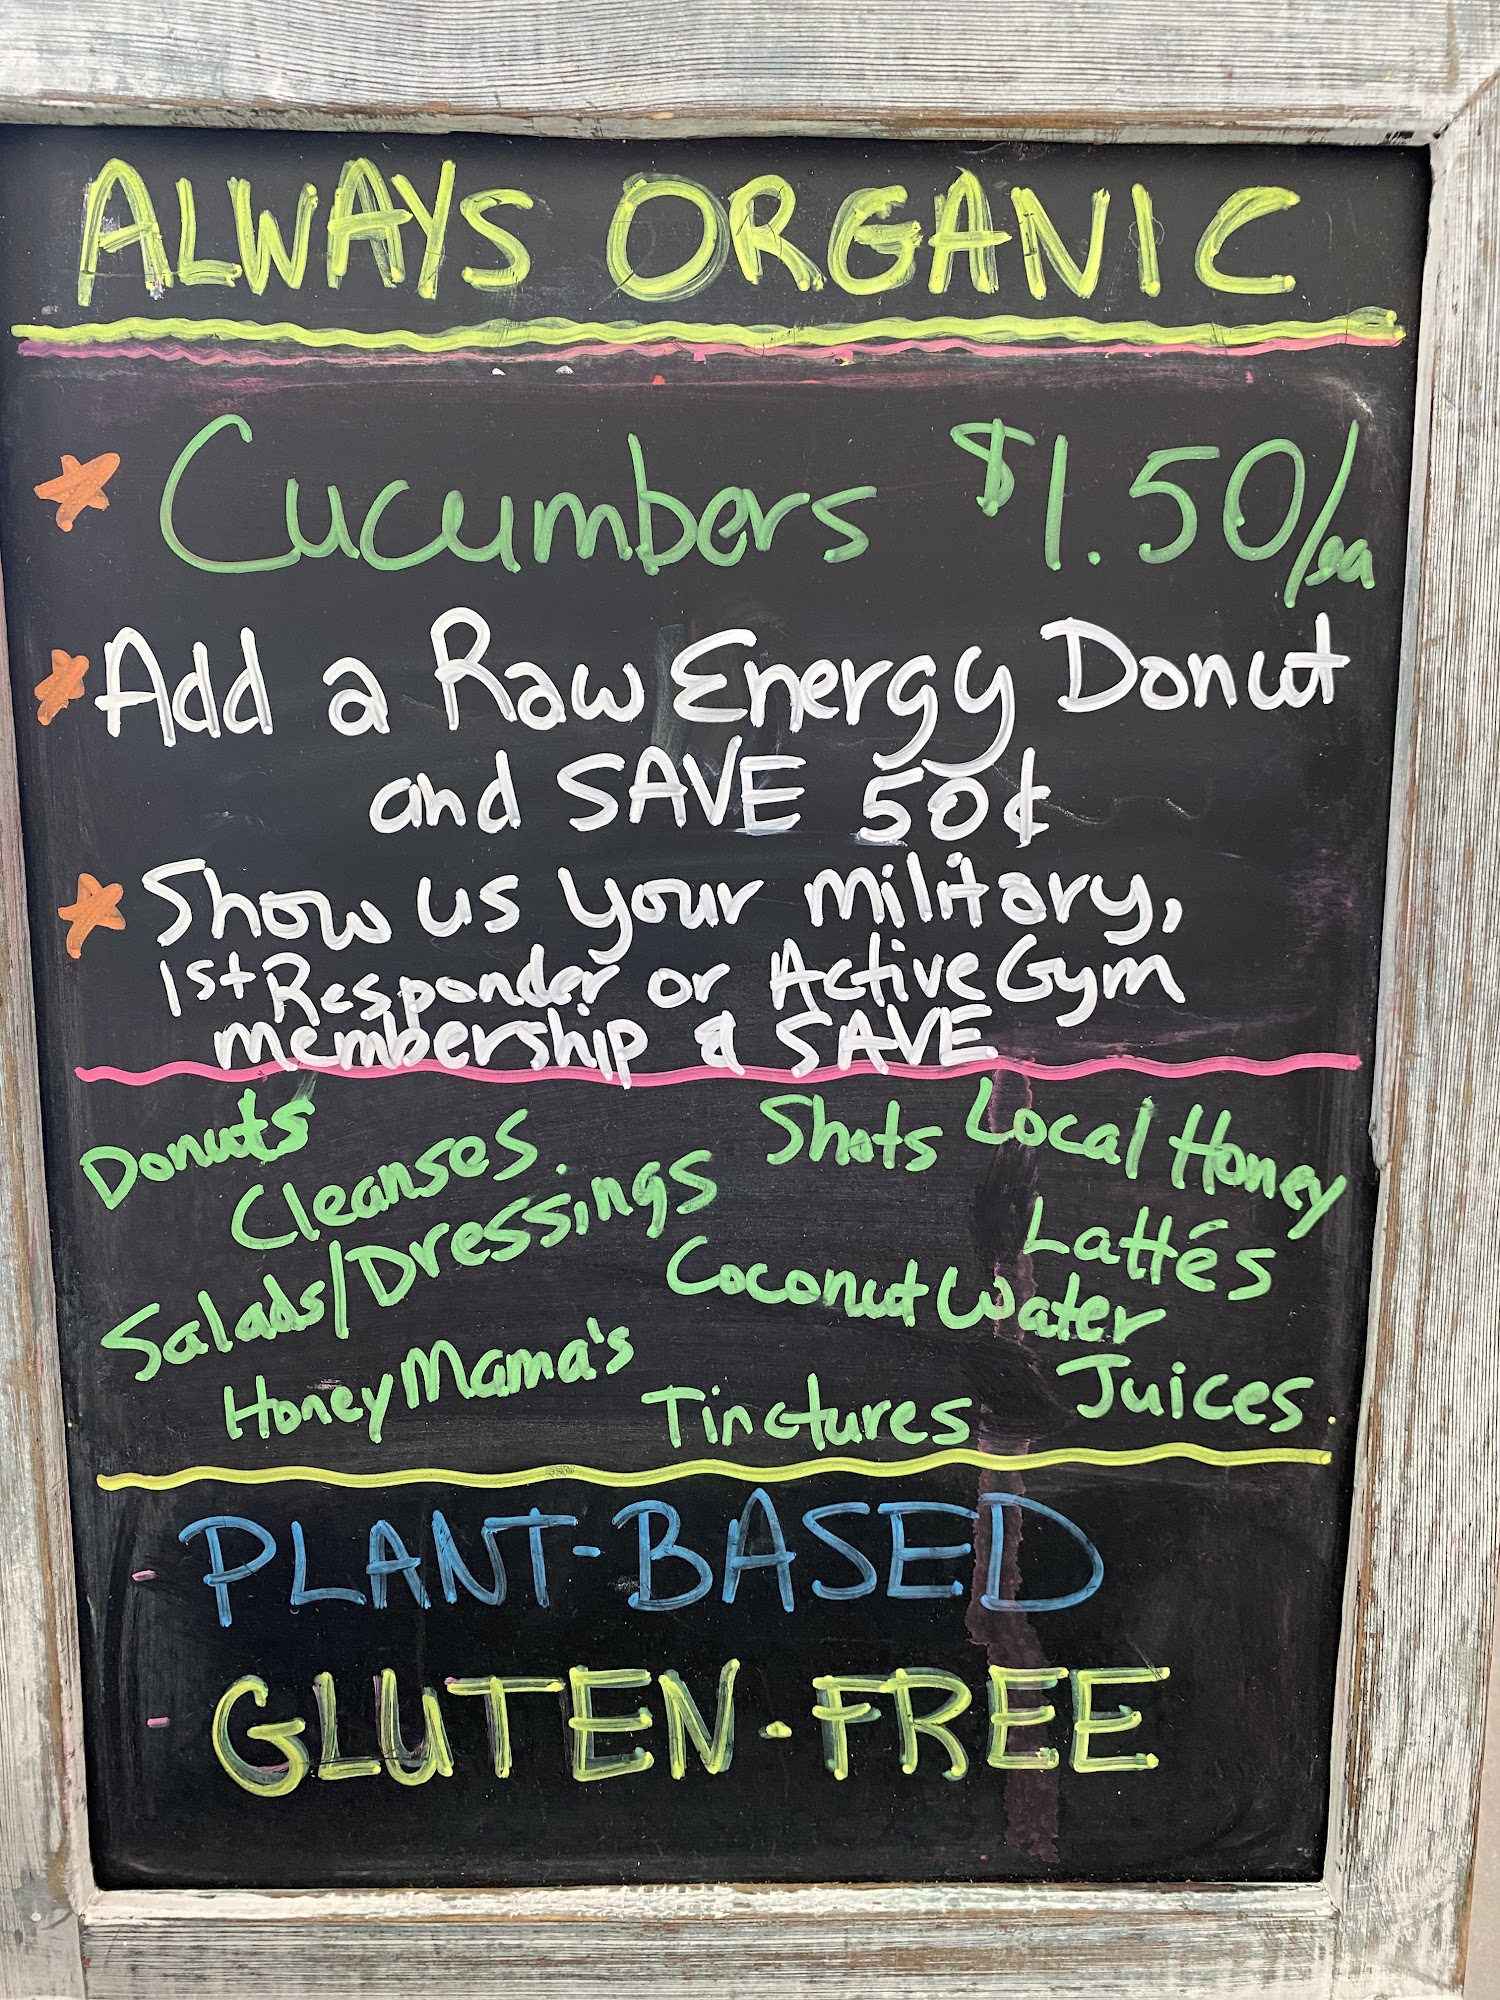 ALWAYS ORGANIC
Cucumbers $1.50/ea
Add a Raw Energy Donut
and SAVE 50¢
Show us your military,
1st Responder or Active Gym
membership & SAVE
Donuts
Cleanses
Salads/Dressings
Honey Mama's
Shots
Local Honey
Lattés
Coconut Water
Juices
Tinctures
PLANT-BASED
GLUTEN-FREE